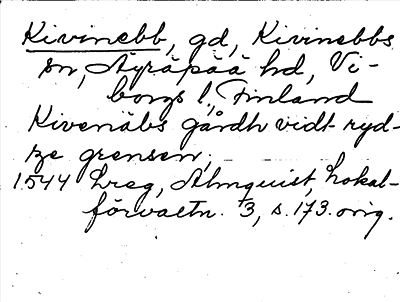 Kivinebb, gd, Kivinebbs
sn, Äyräpää hd, Vi-
borgs l, Finland
Kivenäbs gårdh vidt ryd-
ze grensen,
1544 Lreg, Almquist, Lokal-
förvaltn. 3, s. 173. orig.